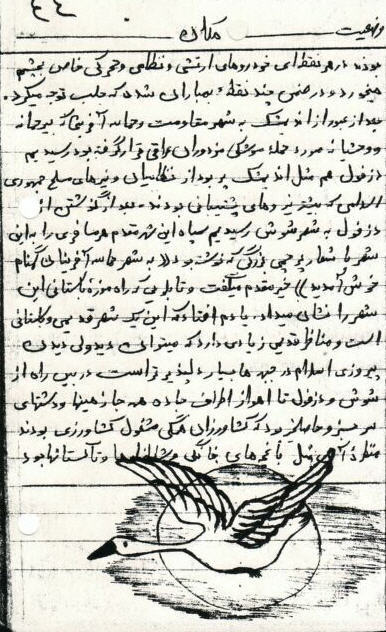 ۴۴
وضعیت مکان
بودند در هر نقطه‌ای خودروهای ارتشی و نظامی و تحرکی خاص بچشم
میخورد و در ضمن چند نقطه بمباران شده که جلب توجه میکرد.
بعد از عبور از اندیمشک به شهر مقاومت و حماسه آفرینی که بیرحمانه
و وحشیانه مورد حمله موشکی مزدوران عراقی قرار گرفته بود رسیدیم
دزفول هم مثل اندیمشک پر بود از نظامیان و نیروهای مسلح جمهوری
اسلامی که بیشتر نیروهای پشتیبانی بودند. بعد از گذشتن از
دزفول به شهر شوش رسیدیم سپاه این شهر مقدم هر مسافری را به این
شهر با شعار پرچمی بزرگ که نوشته بود «به شهر حماسه آفرینان گمنام
خوش آمدید» خیر مقدم میگفت و تابلویی که راه موزه باستانی این
شهر را نشان میداد. یادم افتاد که این یک شهر قدیمی و باستانی
است و مناظر قدیمی زیادی دارد که میتوان دید ولی دیدن
پیروزی اسلام در جبهه‌ها بسیار دلپذیرتر است در بین راه از
شوش و دزفول تا اهواز اطراف جاده همه جا زمینها و دشتهای
سرسبز و حاصلخیز بود که کشاورزان همگی مشغول کشاورزی بودند
منظره آن مثل باغچه‌های خانگی و تاکستانها بود